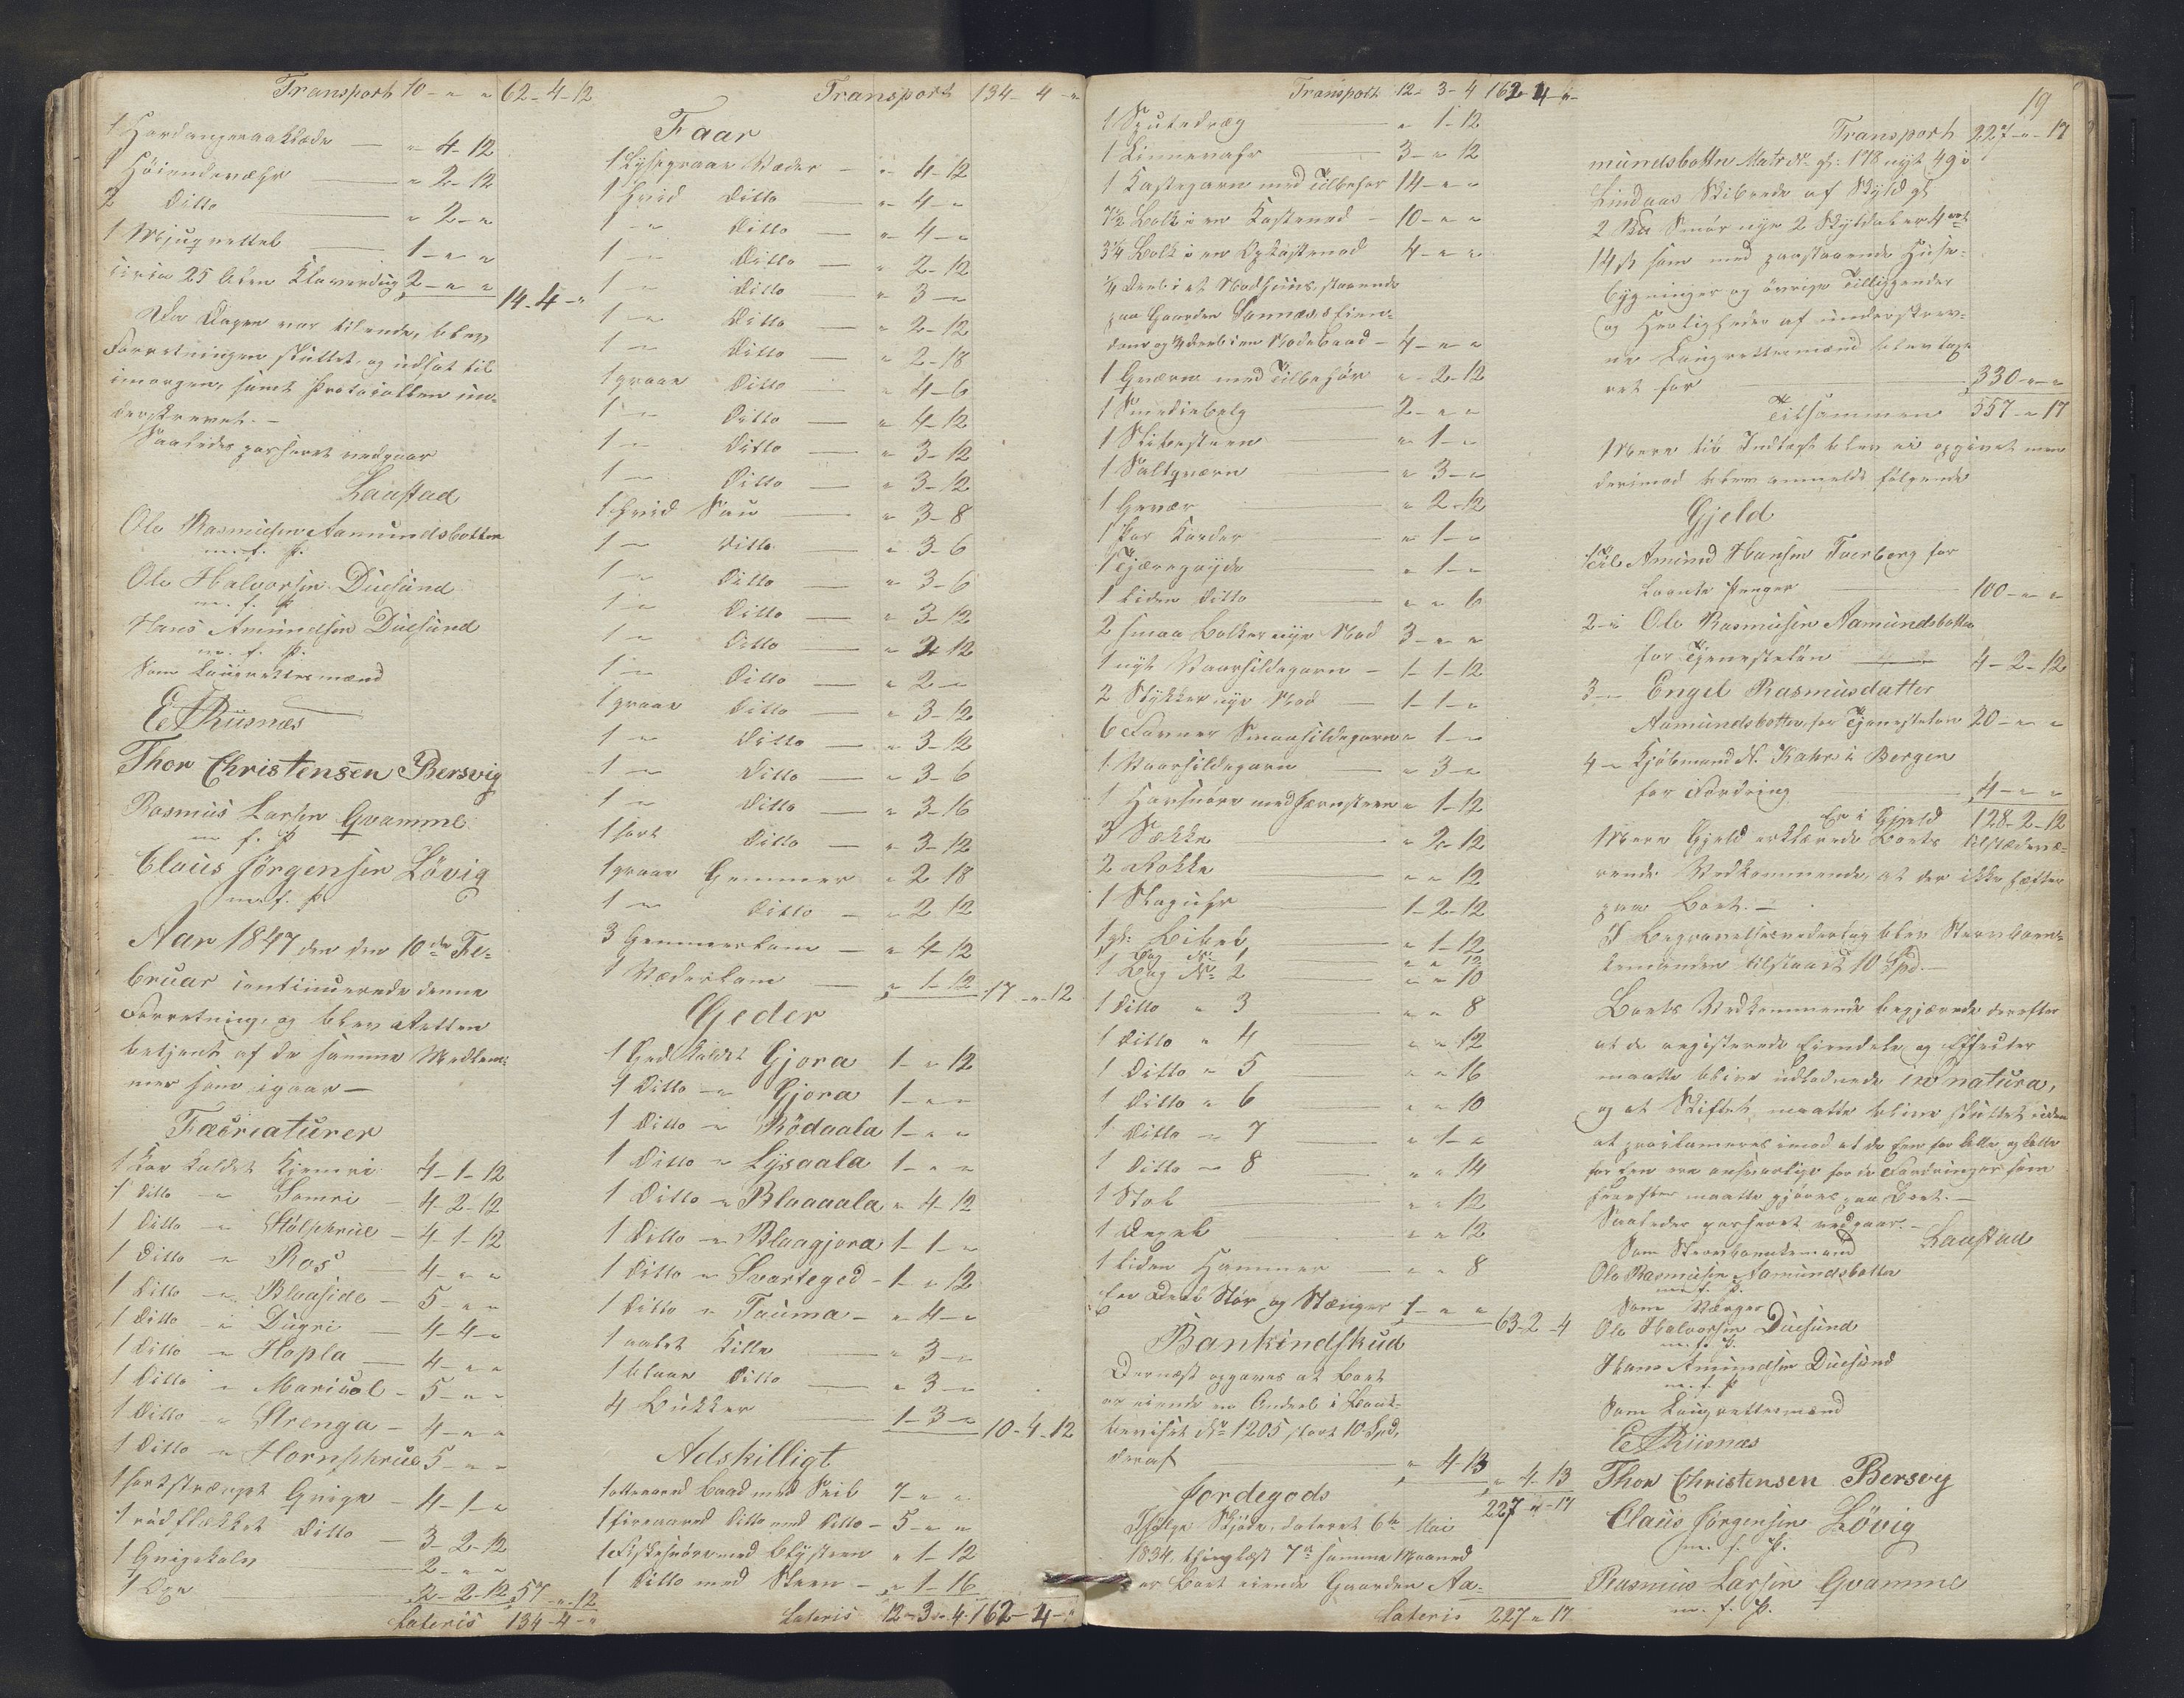 Transport 10 - " - " 62 - 4 - 12
1 Hardangeraaklæde — " 4 - 12
1 Höiendevahr — " 2 - 12
2 Ditto — " 2 - "
1 — 1 - " "
circa 25 Alen Klaverdug 2 - " " 14 - 4 - "
Da Dagen var tilende, blev
Forretningen sluttet og udsat til
imorgen, samt Protocollen un-
derskrevet. -
Saaledes passeret vedgaar
Laustad
Ole Rasmusen Aamundsbotten
m. f. P.
Ole Halvorsen Duesund
m. f. P.
Hans Amundsen Duesund
m. f. P.
Som Laugrettesmænd
E Riisnæs
Thor Christensen Bersvig
Rasmus Larsen Qvamme
m f. P
Claus Jörgensen Lövig
m. f. P.
Aar 1847 den den 10de Fe-
bruar continuerede denne
Forretning, og blev Retten
betjent af de samme Medlem-
mer som igaar -
Fæcreaturer
1 Koe kaldet Kjemri 4 - 1 - 12
1 Ditto - " Somri 4 - 2 - 12
1 Ditto - " Stölsphrue - 4 - 1 - 12
1 Ditto - " Ros 4 - " "
1 Ditto - " Blaaside - 5 - " "
1 Ditto - " Dugri - 4 - 4 - "
1 Ditto - " Hopla - 4 - " "
1 Ditto - " Maricol - 5 - " "
1 Ditto - " Strenga - 4 - " "
1 Ditto - " Hornphrue 5 - " "
1 sortstrenget Qvige - 4 - 1 - "
1 rödflekket Ditto - 3 - 2 - 12
1 Qvigekalv 2 - " "
1 Oxe 2 - 2 - 12 57 - " - 12
Lateris 134 - 4 - "
Transport 134 - 4 - "
Faar
1 Lysegraae Væder - " 4 - 12
1 hvid Ditto - " 4 - "
1 - " Ditto - " 4 - "
1 - " Ditto - " 2 - 12
1 - " Ditto - " 3 - "
1 - " Ditto - " 2 - 12
1 - " Ditto - " 2 - 18
1 graae Ditto - " 4 - 6
1 - " Ditto - " 4 - 12
1 - " Ditto - " 3 - 12
1 - " Ditto - " 3 - 12
1 hvid Sau - " 3 - 8
1 - " Ditto - " 3 - 6
1 - " Ditto - " 3 - 6
1 - " Ditto - " 3 - 12
1 - " Ditto - " 2 12
1 - " Ditto - " 2 - "
1 graae Ditto - " 3 - 12
1 - " Ditto - " 3 - 12
1 - " Ditto - " 3 - 6
1 - " Ditto - " 3 - 16
1 sort Ditto - " 3 - 12
1 graae Gemmer " 2 18
1 - " Ditto - " 2 12
3 Gemmerlam - " 4 - 12
1 Væderlam - " 1 - 12 17 - " - 12
Geder
1 Ged kaldet Gjora 1 - " 12
1 Ditto - " Gjora 1 - " "
1 Ditto - " Rödaala 1 - " "
1 Ditto - " Lysaala 1 - " "
1 Ditto - " Blaaaala " 4 - 12
1 Ditto - " Blaagjora 1 - 1 - "
1 Ditto - " Svarteged - 1 - " 12
1 Ditto - " Tauma - " 4 - "
1 aalet Kille " 3 - "
1 blaae Ditto " 3 - "
4 Bukker 1 - 3 - " 10 - 4 - 12
Adskilligt
1 otteaared Baad med Seil 7 - " "
1 fireaared Ditto med Ditto - 5 - " "
1 Fiskesnöre med Blysteen " 1 - 12
1 Ditto med Steen - " 1 - 16
Lateris 12 - 3 - 4 162 - 4 - "
Transport 12 - 3 - 4 162 - 4 - "
1 Sputedræg " 1 - 12
1 Linnevahr 3 - " 12
1 Kastegarn med Tilbehör 14 - " "
7 1/2 Bolk i en Kastenod - 10 - " "
3 1/4 Bolk i en Opkastenod 4 - " "
1/4 Deel i et Nodhuus, staaende
paa Gaarden Sannæs, eien-
dom og 1/4 deel i en Nodebaad - 4 - " "
1 Qværn med Tilbehör " 2 - 12
1 Smediebelg 2 - " "
1 Slibesteen " 1 - "
1 Saltqværn " 3 - "
1 Gevær " 2 - 12
1 Par Karder " 1 - "
1 Tjæregryde " 1 - "
1 liden Ditto " " 6
2 smaa Bolker nye Nod 3 - " "
1 nyt Vaarsildegarn - 1 - 1 - 12
2 Stykker nye Nod - 1 - 1 - "
6 Favner Smaasildegarn " 1 - "
1 Vaarsildegarn " 3 - "
1 Havsnöre med Jærnsteen " 1 - 12
3 Sække " 2 - 12
2 Rokke " " 12
1 Slaguhr 1 - 2 - 12
1 gl: Bibel " 1 - 12
1 Bog No 1 " " 12
1 Bog No 2 " " 10
1 Ditto " 3 " " 8
1 Ditto " 4 " " 12
1 Ditto " 5 " " 16
1 Ditto " 6 " " 10
1 Ditto - " 7 " 1 - "
1 Ditto - " 8 " " 14
1 Stol " " 12
1 Dexel " " 12
1 liden Hammer " " 8
En Deel Stör og Stænger 1 - " " 63 - 2 - 4
Bankindskud
Dernæst opgaves at Boet
er eiende en Andeel i Bank-
beviset No 1205, stort 10 Spd,
deraf " 4 - 13 " 4 - 13
227 " - 17
Jordegods
Ifölge Skjöde, dateret 6te Mai
1834, thinglæst 7de samme Maaned
er Boet eiende Gaarden Aa-
Lateris 227 " 17
19
Transport 227 - " - 17
mundsbotten Matr. No. gl: 178 nyt 49 i
Lindaas Skibrede af Skyld gl
2 Smör nye 2 Skyldaler 4 ort
14 s som med paastaaende Huse-
bygninger og övrige Tilliggender
og Herligheder af underskrev-
ne Laugrettesmænd blev taxe-
ret for 330 - " - "
Tilsammen 557 - " 17
Mere til Indtægt blev ei opgivet men
derimod blev anmeldt fölgende
Gjeld
1 Til Amund Hansen Tverberg for
laante Penger 100 - " "
2 - " Ole Rasmusen Aamundsbotten
for Tjenestelön 4 - 2 - 12
3 - " Engel Rasmusdatter
Aamundsbotten for Tjenestelön 20 - " "
4 - " Kjöbmand N. Kahrs i Bergen
for Fordring 4 - " "
Er i Gjeld 128 - 2 - 12
Mere Gjeld erklærede Boets tilstedevæ-
rende Vedkommende, at der ikke hæfter
paa Boet. -
I Begravelsesvederlag blev Stervboen-
kemanden tilstaaet 10 Spd. -
Boets Vedkommende begjærede derefter
at de registerede Eiendele og Effecter
maatte blive udlodnede in natura,
og at Skiftet maatte blive sluttet uden
at proclameres imod at de Een for Alle og Alle
for Een ere ansvarlige for de Fordringer som
herefter maatte gjöres paa Boet. -
Saaledes passeret vedgaar. -
Laustad
Som Stervboenkemand
Ole Rasmusen Aamundsbotten
m. f. P.
Som Værger
Ole Halvorsen Duesund
m. f. P.
Hans Amundsen Duesund
m. f. P
Som Laugrettesmænd
E Riisnæs
Thor Christensen Bersvig
Claus Jörgensen Lövig
m. f. P.
Rasmus Larsen Qvamme
m. f. P.